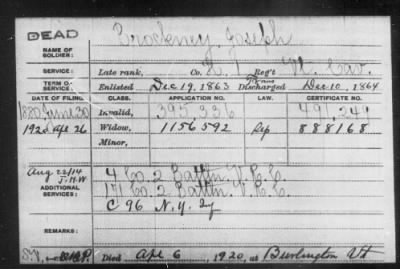 DEAD
NAME OF SOLDIER:
Crockney, Joseph
SERVICE:
Late rank, Co. L, 1 Reg't Cav.
TERM OF SERVICE:
Enlisted Dec 19, 1863 Trans Discharged Dec 10, 1864
DATE OF FILING. CLASS. APPLICATION NO. LAW. CERTIFICATE NO.
1880 June 30 Invalid, 395,336
1920 Apr 26 Widow, 1156592 Rep 888168
Minor,
Aug 22/14
J.H.W
ADDITIONAL SERVICES:
4 Co. 2 Battn V.R.C.
Co. 2 Battn. V.R.C.
C 96 N.Y. Inf
REMARKS:
Died Apr 6, 1920, at Burlington Vt